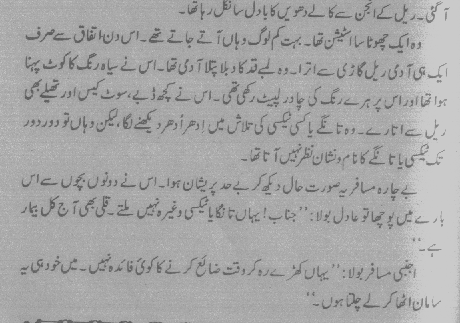 آ گئی۔ ریل کے انجن سے کالے دھویں کا بادل سا نکل رہا تھا۔
وہ ایک چھوٹا سا اسٹیشن تھا۔ بہت کم لوگ وہاں آتے جاتے تھے۔ اس دن اتفاق سے صرف
ایک ہی آدمی ریل گاڑی سے اترا۔ وہ لمبے قد کا دبلا پتلا آدمی تھا۔ اس نے سیاہ رنگ کا کوٹ پہنا
ہوا تھا اور اس پر ہرے رنگ کی چادر لپیٹ رکھی تھی۔ اس نے کچھ ڈبے، سوٹ کیس اور تھیلے بھی
ریل سے اتارے۔ وہ تانگے یا کسی ٹیکسی کی تلاش میں اِدھر اُدھر دیکھنے لگا، لیکن وہاں تو دور دور
تک ٹیکسی یا تانگے کا نام و نشان نظر نہیں آتا تھا۔
بے چارہ مسافر یہ صورت حال دیکھ کر بے حد پریشان ہوا۔ اس نے دونوں بچوں سے اس
بارے میں پوچھا تو عادل بولا: ’’جناب! یہاں تانگا یا ٹیکسی وغیرہ نہیں ملتے۔ قلی بھی آج کل بیمار
ہے۔‘‘
اجنبی مسافر بولا: ’’یہاں کھڑے رہ کر وقت ضائع کرنے کا کوئی فائدہ نہیں۔ میں خود ہی یہ
سامان اٹھا کر لے چلتا ہوں۔‘‘